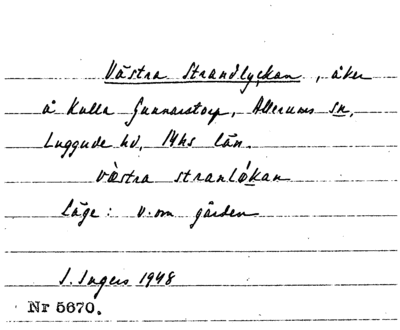 Västra Strandlyckan, åker
å Kulla Gunnarstorp, Allerums sn,
Luggude hd, Mhs län.
væ̀stra stranlǿkan
läge: v. om gården
I. Ingers 1948
Nr 5670.